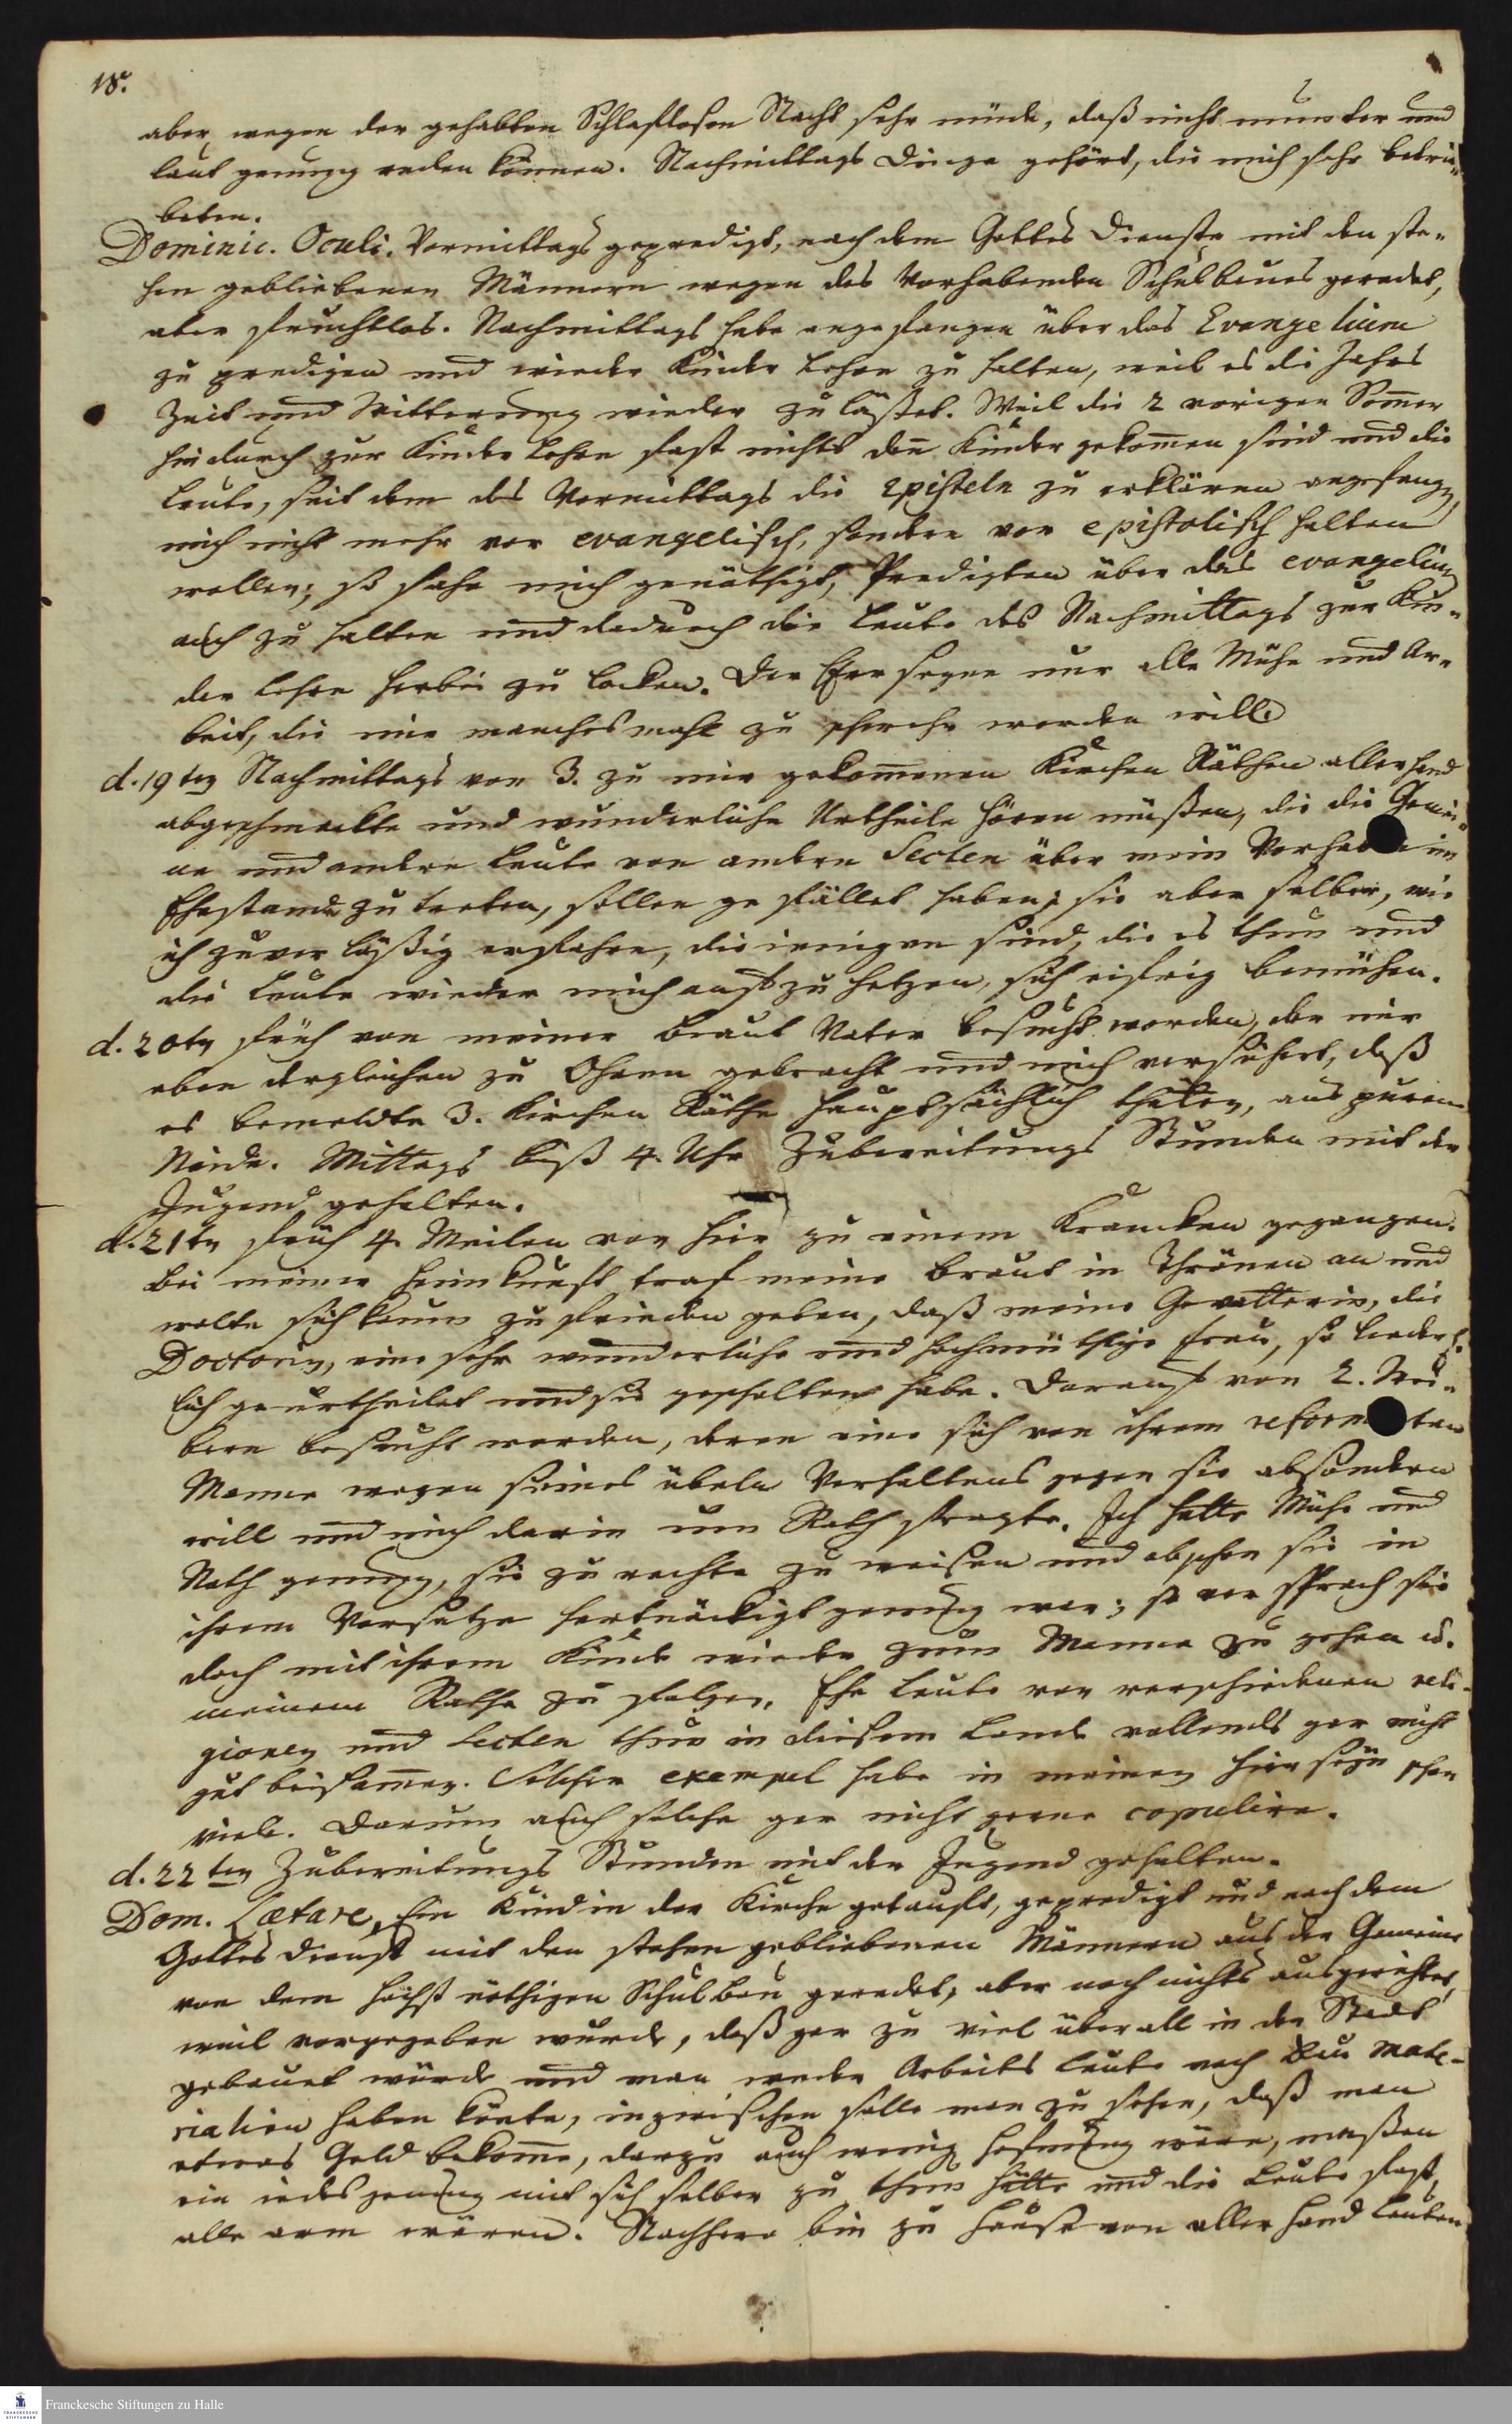 18.
aber wegen der gehabten Schlaflosen Nacht sehr müde, daß nicht munter und
laut genung reden können. Nachmittags Dinge gehört, die mich sehr betrü-
beten.
Dominic. Oculi. Vormittags geprediget, nach dem Gottes Dienste mit den ste-
hen gebliebenen Männern wegen des Vorhabenden Schulbaues geredet,
aber fruchtlos. Nachmittags habe angefangen über das Evangelium
zu predigen und wieder Kinder Lehre zu halten, weil es die Jahrs
Zeit und Witterung wieder zu läßet. Weil die 2 vorigen Som̅er
hindurch zur Kinder Lehre fast nichts den̅ Kinder gekom̅en sind und die
Leute, seit dem des Vormittags die Episteln zu erklären angefangen,
mich nicht mehr vor evangelisch, sondern vor epistolisch halten
wollen; so sahe mich genöthigt, Predigten über das evangelium
auch zu halten und dadurch die Leute des Nachmittags zur Kin-
der Lehre herbei zu locken. Der Herr segne nur alle Mühe und Ar-
beit, die mir manchesmahl zu schwehr werden will.
d. 19ten Nachmittags von 3. zu mir gekom̅enen Kirchen Räthen allerhand
abgeschmackte und wunderliche Urtheile hören müßen, die die Gemei-
ne und andere Leute von andern Secten über mein Vorhaben im
Ehestande zu treten, sollen gefället haben; sie aber selber, wie
ich zuverläßig erfahre, diejenigen sind, die es thun und
die Leute wieder mich aufzuhetzen, sich eifrig bemühen.
d. 20ten früh von meiner Braut Vater besucht worden, der mir
eben dergleichen zu Ohren gebracht und mich versichert, daß
es bemeldte 3. Kirchen Räthe hauptsächlich thäten, aus purem
Neide. Mittags biß 4. Uhr Zubereitungs Stunden mit der
Jugend gehalten.
d. 21ten früh 4. Meilen von hier zu einem Krancken gegangen.
Bei meiner Heimkunft traf meine Braut in Thränen an und
wolte sich kaum zu frieden geben, daß meine Gevatterin, die
Doctorin, eine sehr wunderliche und hochmüthige Frau, so lieder-
lich geurtheilet und sie gescholten habe. Darauf von 2. Wei-
bern besucht worden, deren eine sich von ihrem reformirten
Manne wegen seines übeln Verhaltens gegen sie absondern
will und mich darin um Rath fragte. Ich hatte Mühe und
Noth genung, sie zu rechte zu weisen und obschon sie in
ihrem Vorsatze hartnäckigt genung war; so versprach sie
doch mit ihrem Kinde wieder zum Manne zu gehen u.
meinem Rathe zu folgen. Ehe Leute von verschiedenen reli-
gionen und Secten thun in diesem Lande vollends gar nicht
gut beisam̅en. Solcher exempel habe in meinem hierseyn schon
viele. Darum auch solche gar nicht gerne copulire.
d. 22ten Zubereitungs Stunden mit der Jugend gehalten.
Dom. Lætare, Ein Kind in der Kirche getauft, geprediget und nach dem
Gottes Dienst mit den stehen gebliebenen Männern aus der Gemeine
von dem höchst nöthigen Schulbau geredet, aber noch nichts ausgerichtet,
weil vorgegeben wurde, daß gar zu viel überall in der Stadt
gebauet würde und man weder Arbeits Leute noch Bau mate-
rialien haben könte, inzwischen solle man zu sehen, daß man
etwas Geld bekom̅e, darzu auch wenig Hofnung wäre, maßen
ein iedes genung mit sich selber zu thun hätte und die Leute fast
alle arm wären. Nachhero bin zu Hause von aller hand Leuten
Franckesche Stiftungen zu Halle